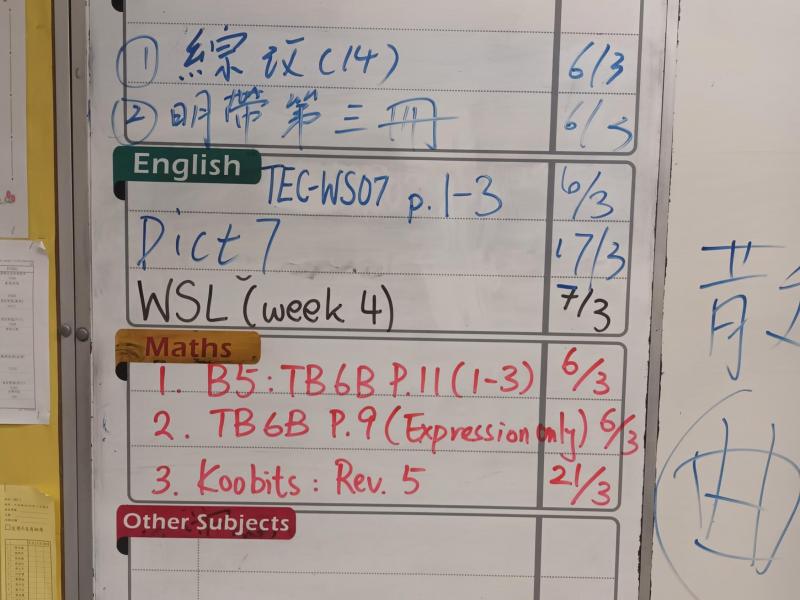 ① 綜攷(14) 6/3
② 明帶第三冊 6/3
English
TEC-WS07 p.1-3 6/3
Dict 7 17/3
WSL (week 4) 7/3
Maths
1. B5: TB6B P.11 (1-3) 6/3
2. TB6B P.9 (Expression only) 6/3
3. Koobits: Rev. 5 21/3
Other Subjects